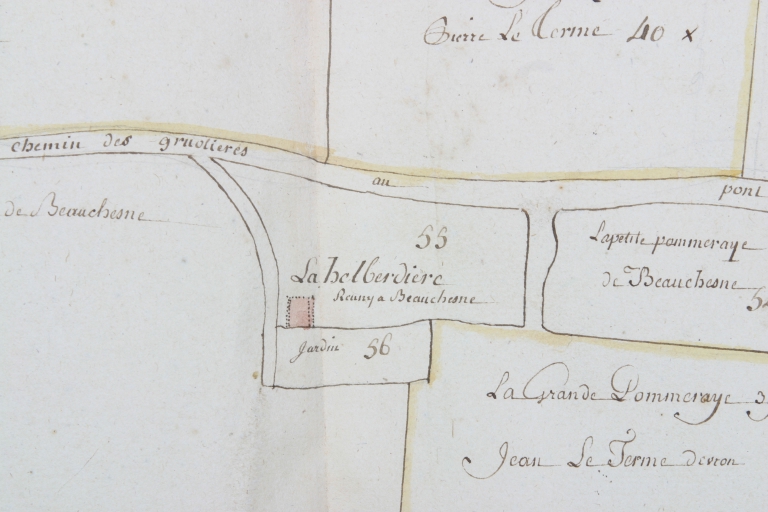 Pierre Le Terme 40 x
chemin des gruolieres au pont
de Beauchesne
55
La helberdiere
Reuny a Beauchesne
Lapetite pommeraye
de Beauchesne
Jardin 56
La Grande Pommeraye
Jean Le Terme devron